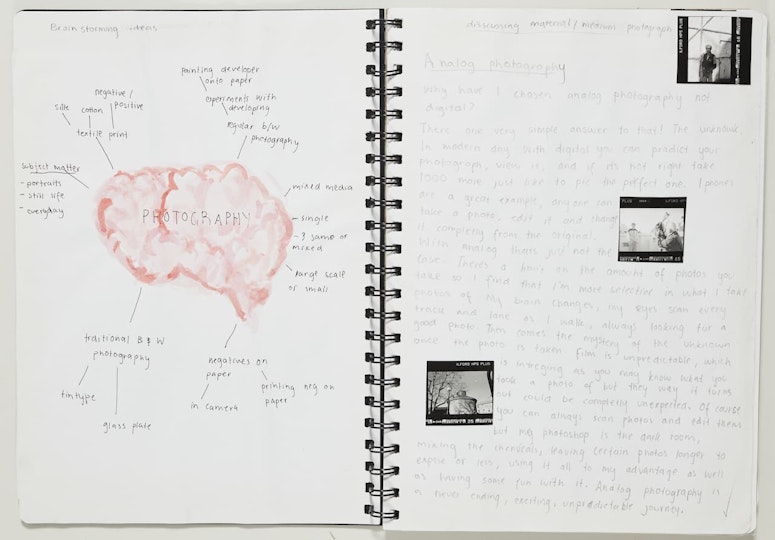 Brain storming ideas
negative/
positive
silk
cotton
textile print
painting developer
onto paper
experiments with
developing
regular b/w
photography
subject matter
- portraits
- still life
- everyday
PHOTOGRAPHY
mixed media
- single
- 3 same or
mixed
large scale
or small
traditional B & W
photography
tintype
glass plate
negatives on
paper
in camera
printing neg. on
paper
discussing material/medium photograph
ILFORD HP5 PLUS
Analog photography
Why have I chosen analog photography not
digital?
There one very simple answer to that! The unknown.
In modern day with digital you can predict your
photograph, view it, and if it's not right take
1000 more just like to pic the perfect one. Iphones
are a great example, anyone can
take a photo, edit it and change
it completly from the original.
With analog thats just not the
case. There's a limit on the amount of photos you
take so I find that i'm more selective in what I take
photos of. My brain changes, my eyes scan every
track and lane as I walk, always looking for a
good photo. Then comes the mystery of the unknown
once the photo is taken film is unpredictable, which
is as you may know what you
took a photo of but they way it turns
out could be completly unexpected. Of cause
you can always scan photos and edit them
but my photoshop is the dark room,
mixing the chemicals, leaving certain photos longer to
expose or less, using it all to my advantage as well
as having some fun with it. Analog photography is
a never ending, exciting, unpredictable journey.
PLUS
ILFORD HP5 PLUS